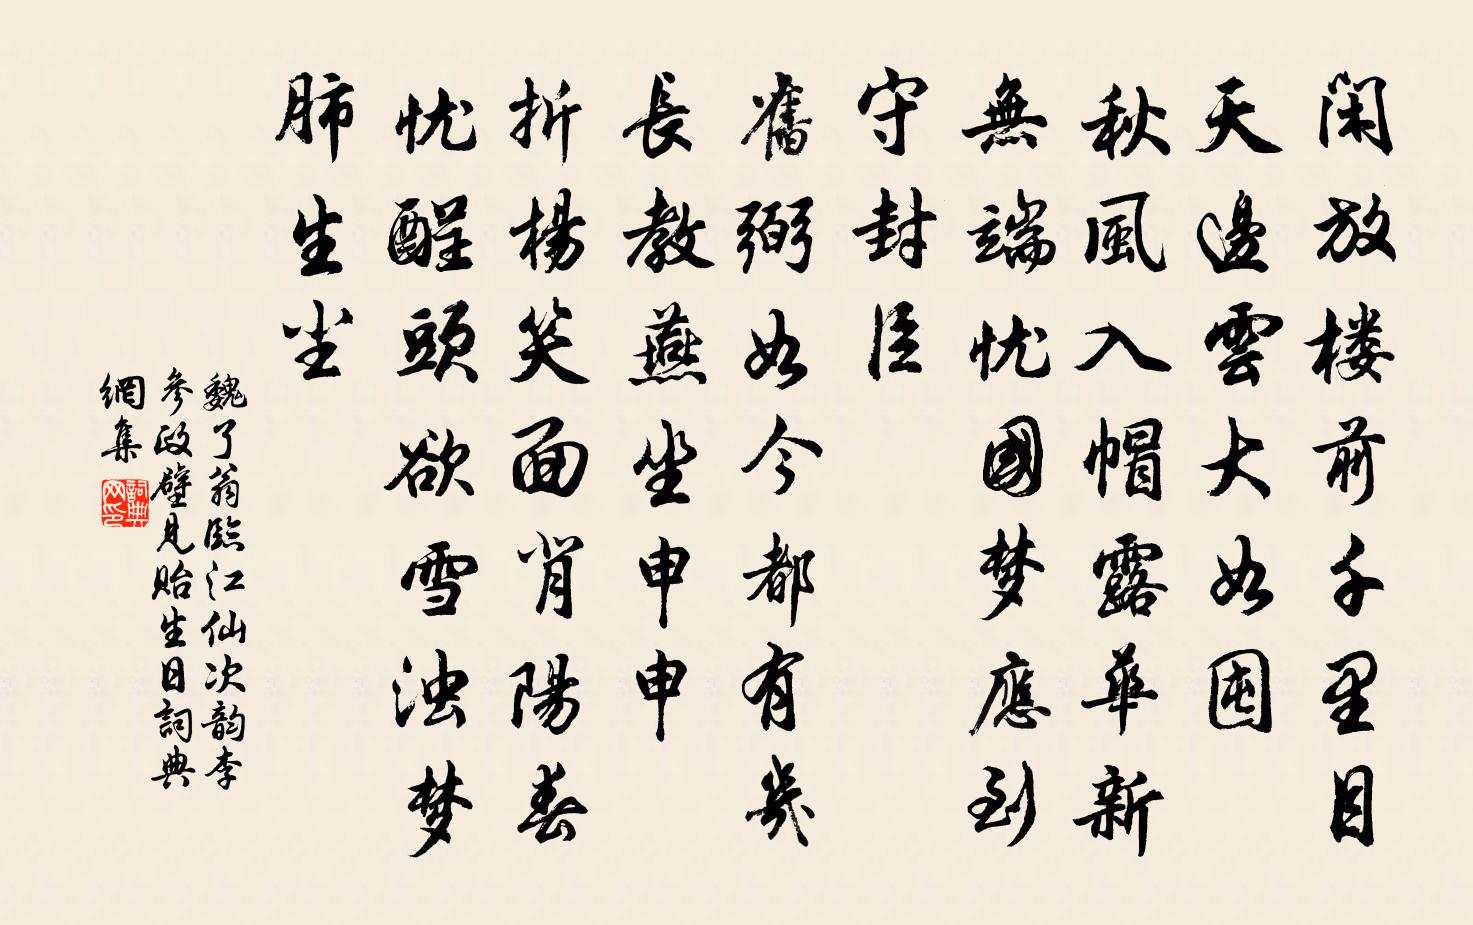 閑放楼前千里目
天邊雲大如囷
秋風入帽露華新
無端忧國梦應到
守封臣
舊弼如今都有幾
長教燕坐申申
折楊笑面肖陽春
忧醒頭欲雪浊梦
肺生尘
魏了翁臨江仙次韵李
参政壁見貽生日詞典
網集
詞典
网印